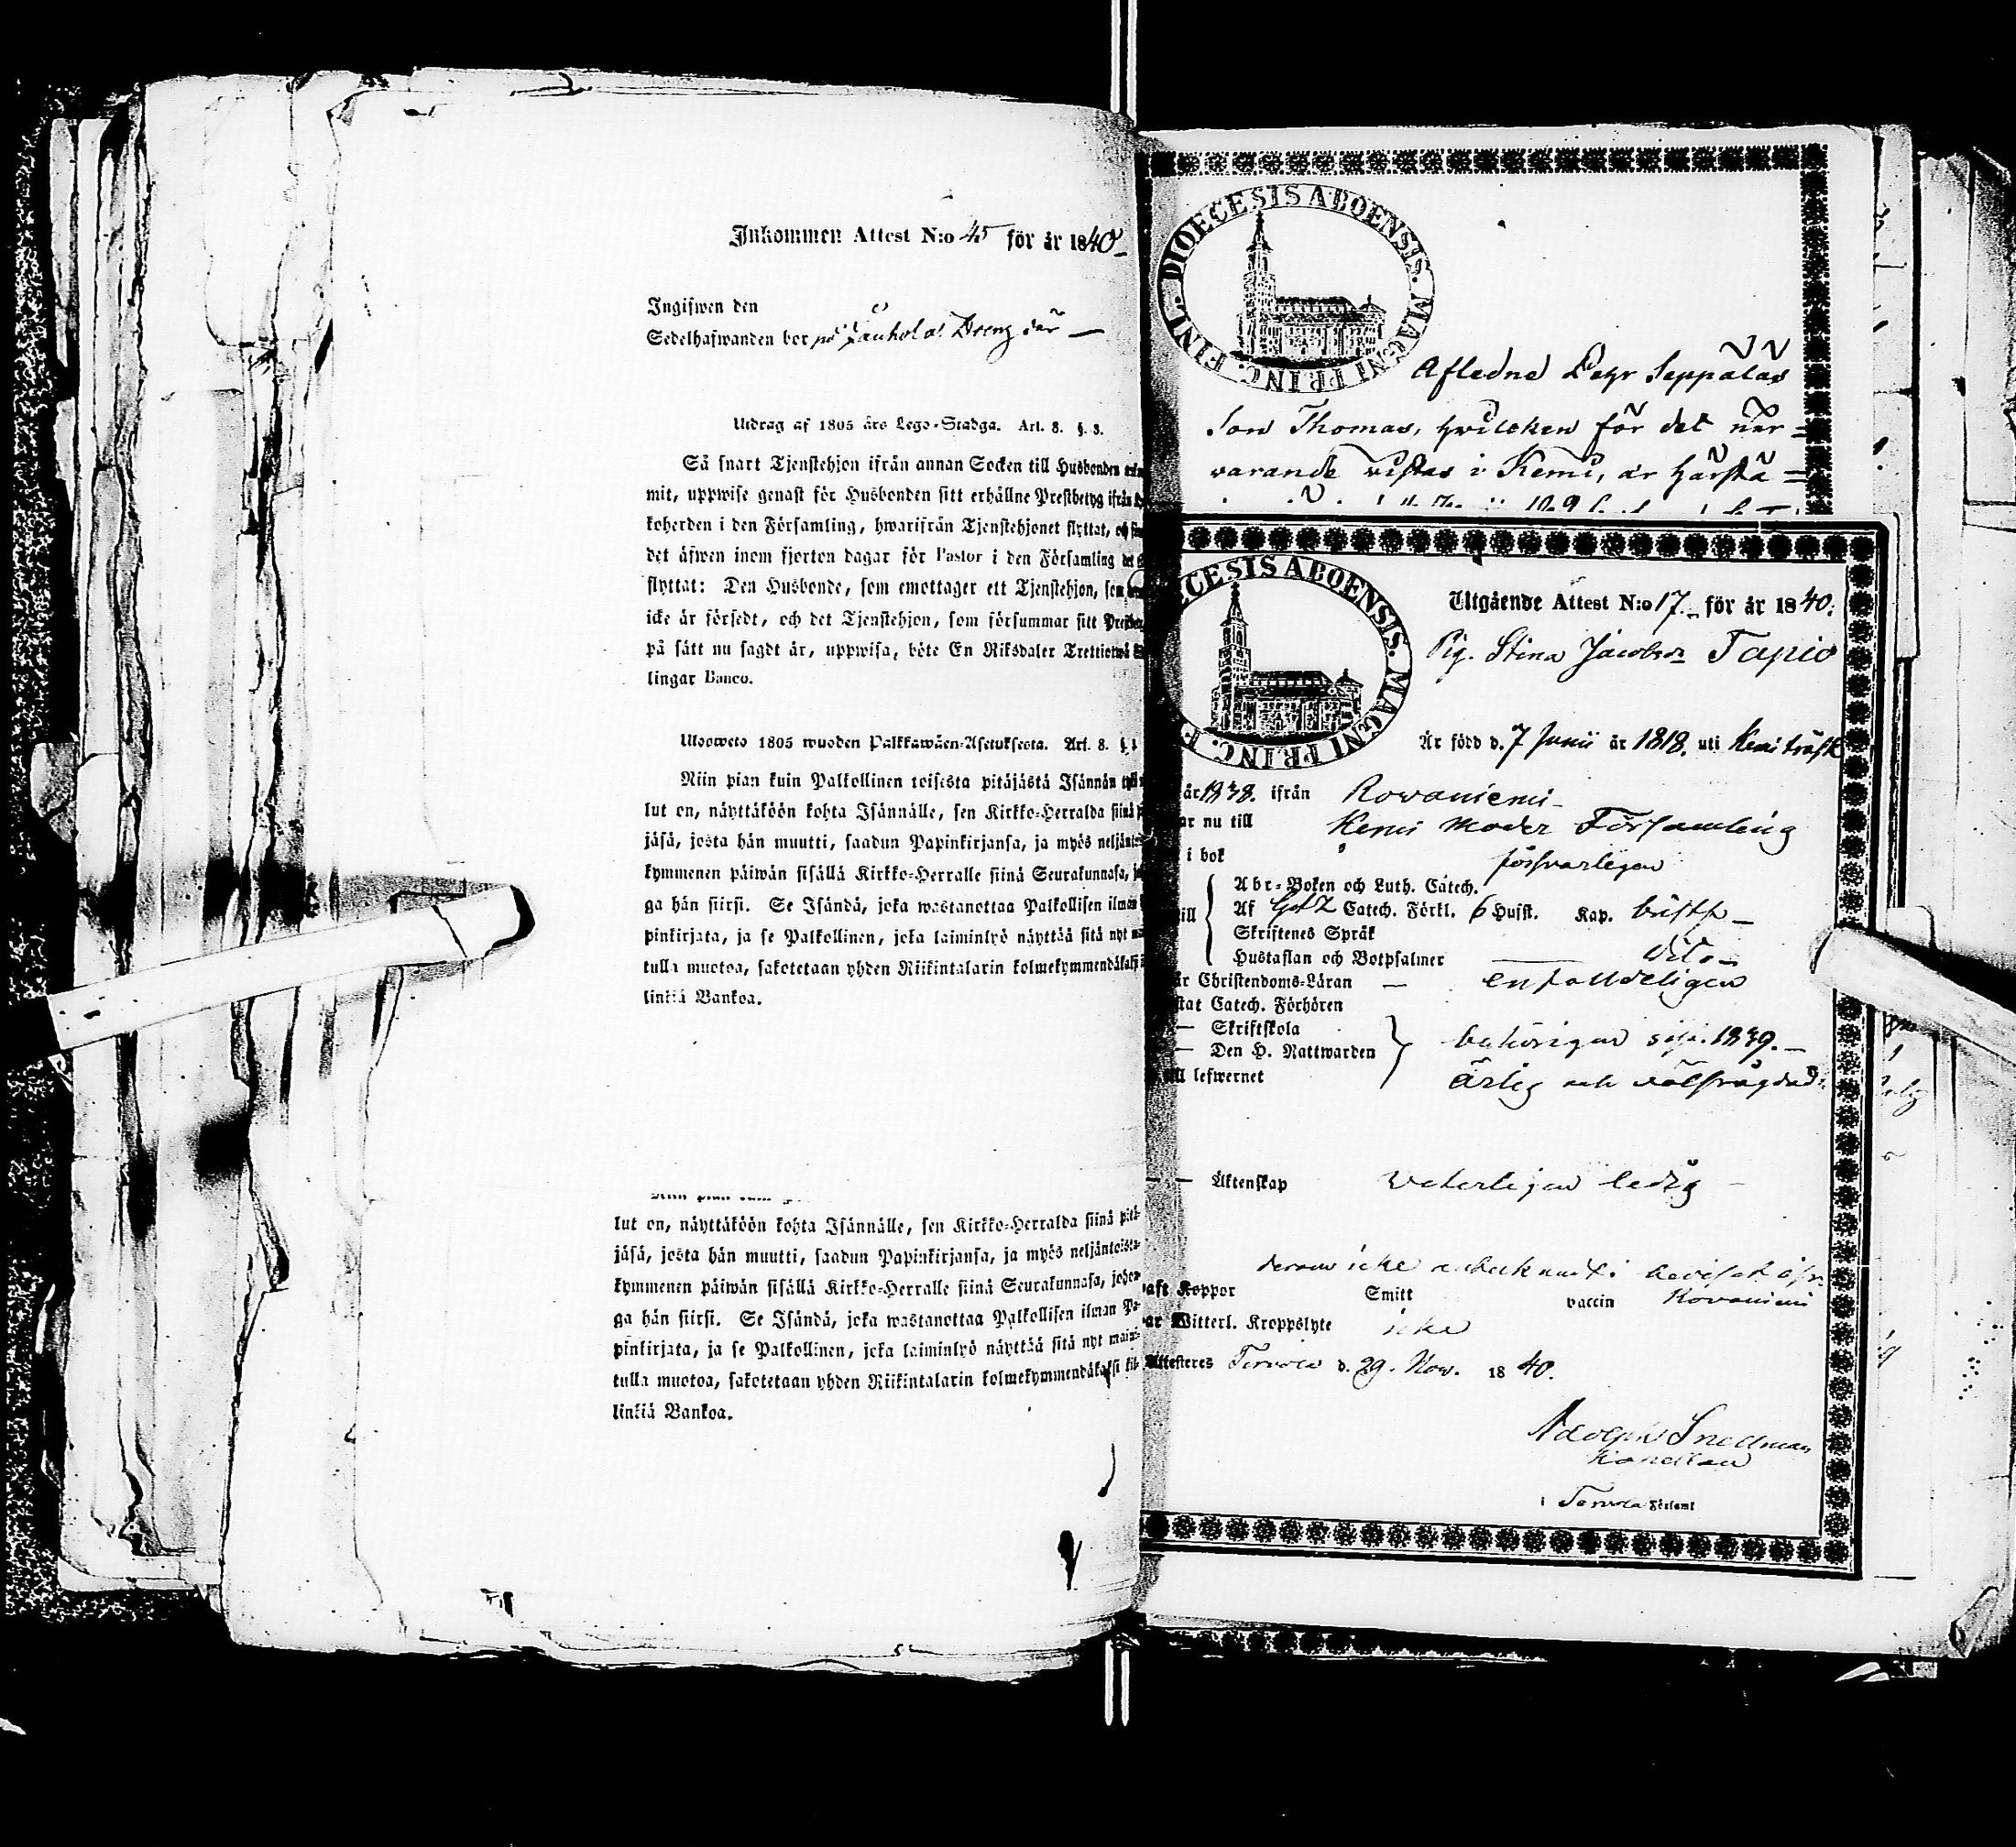 Inkommen Attest N:o 45 för år 1840
Ingifwen den
Sedelhafwanden bor på Dreng där —
Utdrag af 1805 års Lego-Stadga. Art. 8. §. 3.
Så snart Tjenstehjon ifrån annan Socken till Husbonden
mit, uppwise genast för Husbonden sitt erhållne Prestbetyg ifrån
koherden i den Församling, hwarifrån Tjenstehjonet flyttat, och
det äfwen inom fjorton dagar för Pastor i den Församling det
flyttat: Den Husbonde, som emottager ett Tjenstehjon, som
icke är försedt, och det Tjenstehjon, som försummar sitt
på sätt nu sagdt är, uppwisa, böte En Riksdaler Trettiotwå
lingar Banco.
Ulosweto 1805 wuoden Palkkawäen-Asetuksesta. Art. 8. §.
Niin pian kuin Palkollinen toisesta pitäjästä Isännän
lut on, näyttäköön kohta Isännälle, sen Kirkko-Herralda siinä
jäsä, josta hän muutti, saadun Papinkirjansa, ja myös
kymmenen päiwän sisällä Kirkko-Herralle siinä Seurakunnasa,
ga hän siirsi. Se Isändä, joka wastanottaa Palkollisen ilman
pinkirjata, ja se Palkollinen, joka laiminlyö näyttää sitä nyt
tulla muotoa, sakotetaan yhden Riikintalarin kolmekymmendäkaksi
linkiä Bankoa.
lut on, näyttäköön kohta Isännälle, sen Kirkko-Herralda siinä pitä-
jäsä, josta hän muutti, saadun Papinkirjansa, ja myös neljäntoista-
kymmenen päiwän sisällä Kirkko-Herralle siinä Seurakunnasa, johon-
ga hän siirsi. Se Isändä, joka wastanottaa Palkollisen ilman Pa-
pinkirjata, ja se Palkollinen, joka laiminlyö näyttää sitä nyt maini-
tulla muotoa, sakotetaan yhden Riikintalarin kolmekymmendäkaksi kil-
linkiä Bankoa.
DIOECESIS ABOENSIS. MAGNI PRINC. FINL.
Afledne Pehr Seppälas
Son Thomas, hvilcken för det när=
varande vistas i Kemi, är härstä=
CESIS ABOENSIS. MAGNI PRINC. F
Utgående Attest N:o 17. för år 1840.
Pig. Stina Jacobsr Tapio
Är född d. 7 Junii år 1818. uti Kemi träsk
år 1838. ifrån Rovaniemi
ar nu till Kemi Moder Församling
i bok försvarligen
Abr-Boken och Luth. Catech.
ill Af Catech. Förkl. 6 Hufst. Kap.
Skriftenes Språk
Hustaflan och Botpsalmer dito
är Christendoms-Läran — enfalldeligen
stat Catech. Förhören
— Skriftskola
— Den H. Nattwarden behörigen 1839. —
till lefwernet ärlig och välfrägdad
— — Äktenskap veterligen ledig
icke Rovaniemi
aft Koppor Smitt vaccin
ar Witterl. Kroppslyte icke
Attesteres Terwola d. 29. Nov. 1840.
Adolph Snellman
i Terwola Församl